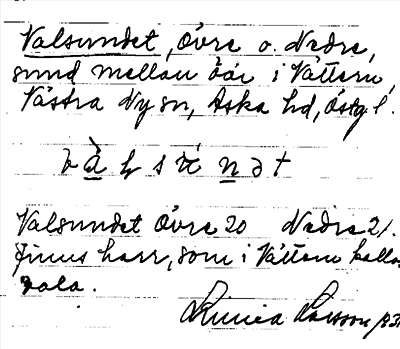 Valsundet, Övre o. Nedre,
sund mellan öar i Vättern,
Västra Ny sn, Aska hd, Östg l.
Valsundet Övre 20 Nedre 21.
Finns harr, som i Vättern kallas
Linnea Larsson